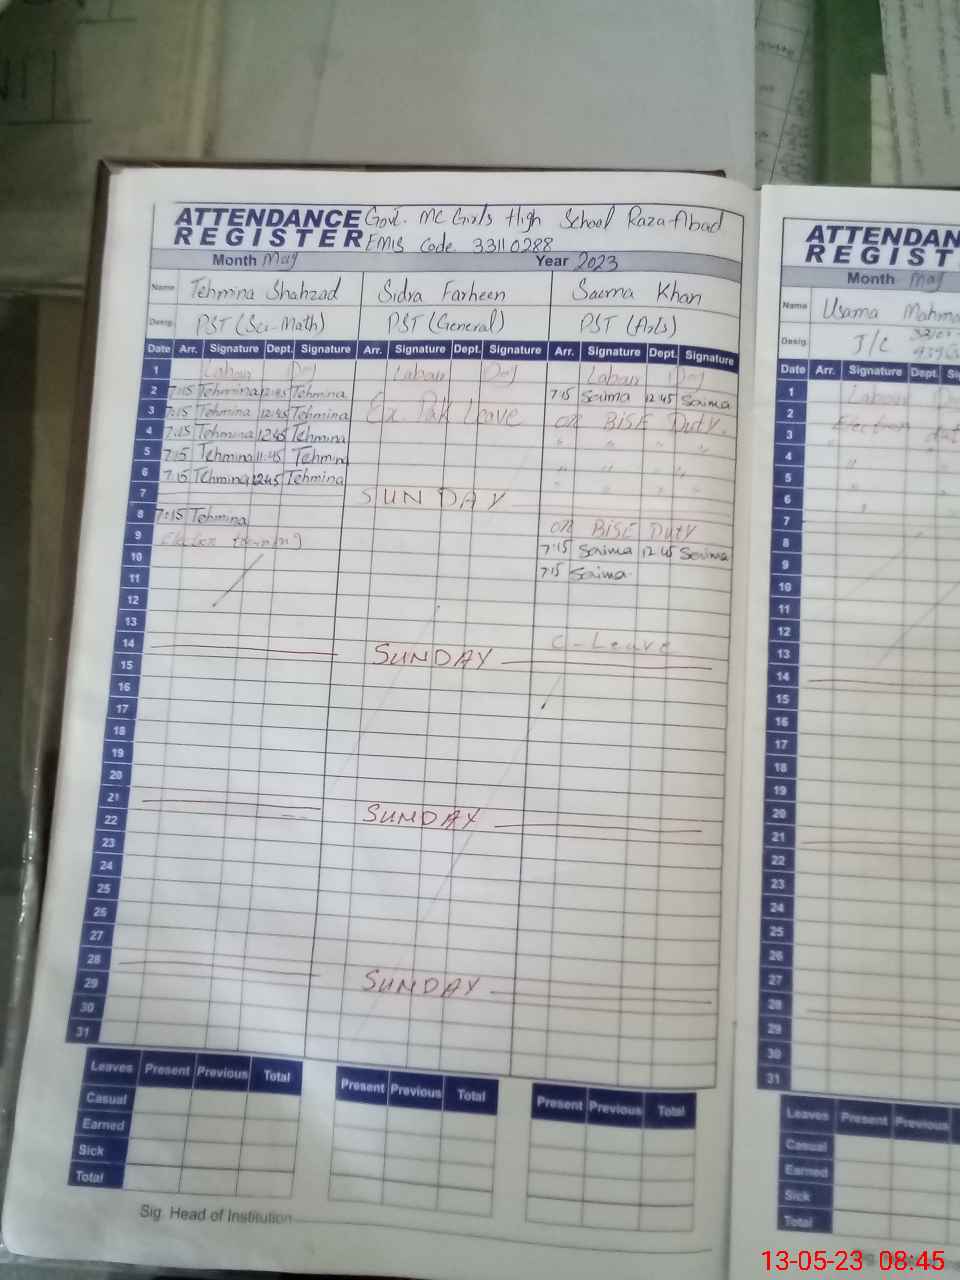 ATTENDANCE REGISTER
Govt. MC Girls High School Raza-Abad
EMIS Code 33110288
Month May Year 2023
Name Tehmina Shahzad Sidra Farheen Saima Khan
Desig. PST (Sci-Math) PST (General) PST (Arts)
Date Arr. Signature Dept. Signature Arr. Signature Dept. Signature Arr. Signature Dept. Signature
1 Labour Day Labour Day Labour Day
2 7:15 Tehmina 12:45 Tehmina 7:15 Saima 12 45 Saima
3 7:15 Tehmina 12:45 Tehmina Ex. Pak Leave on BISE Duty.
4 7:15 Tehmina 12 45 Tehmina " " " "
5 7:15 Tehmina 11:45 Tehmina " " " "
6 7:15 Tehmina 12 45 Tehmina " " " "
7 SUNDAY
8 7:15 Tehmina on BISE Duty
9 training 7:15 Saima 12 45 Saima
10 7:15 Saima
11
12
13 C-Leave
14 SUNDAY
15
16
17
18
19
20
21 SUNDAY
22
23
24
25
26
27
28 SUNDAY
29
30
31
Leaves Present Previous Total Present Previous Total Present Previous Total
Casual
Earned
Sick
Total
Sig. Head of Institution
ATTENDAN
REGIST
Month May
Name Usama Mahm
Desig. J/C
Date Arr. Signature Dept.
1 Labour
2
3 Election
4 "
5 "
6
7
8
9
10
11
12
13
14
15
16
17
18
19
20
21
22
23
24
25
26
27
28
29
30
31
Leaves Present Previous
Casual
Earned
Sick
Total
13-05-23 08:45